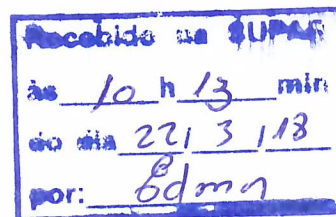 Recebido na SUPAR
às 10 h 13 min
do dia 22/ 3 /18
por: